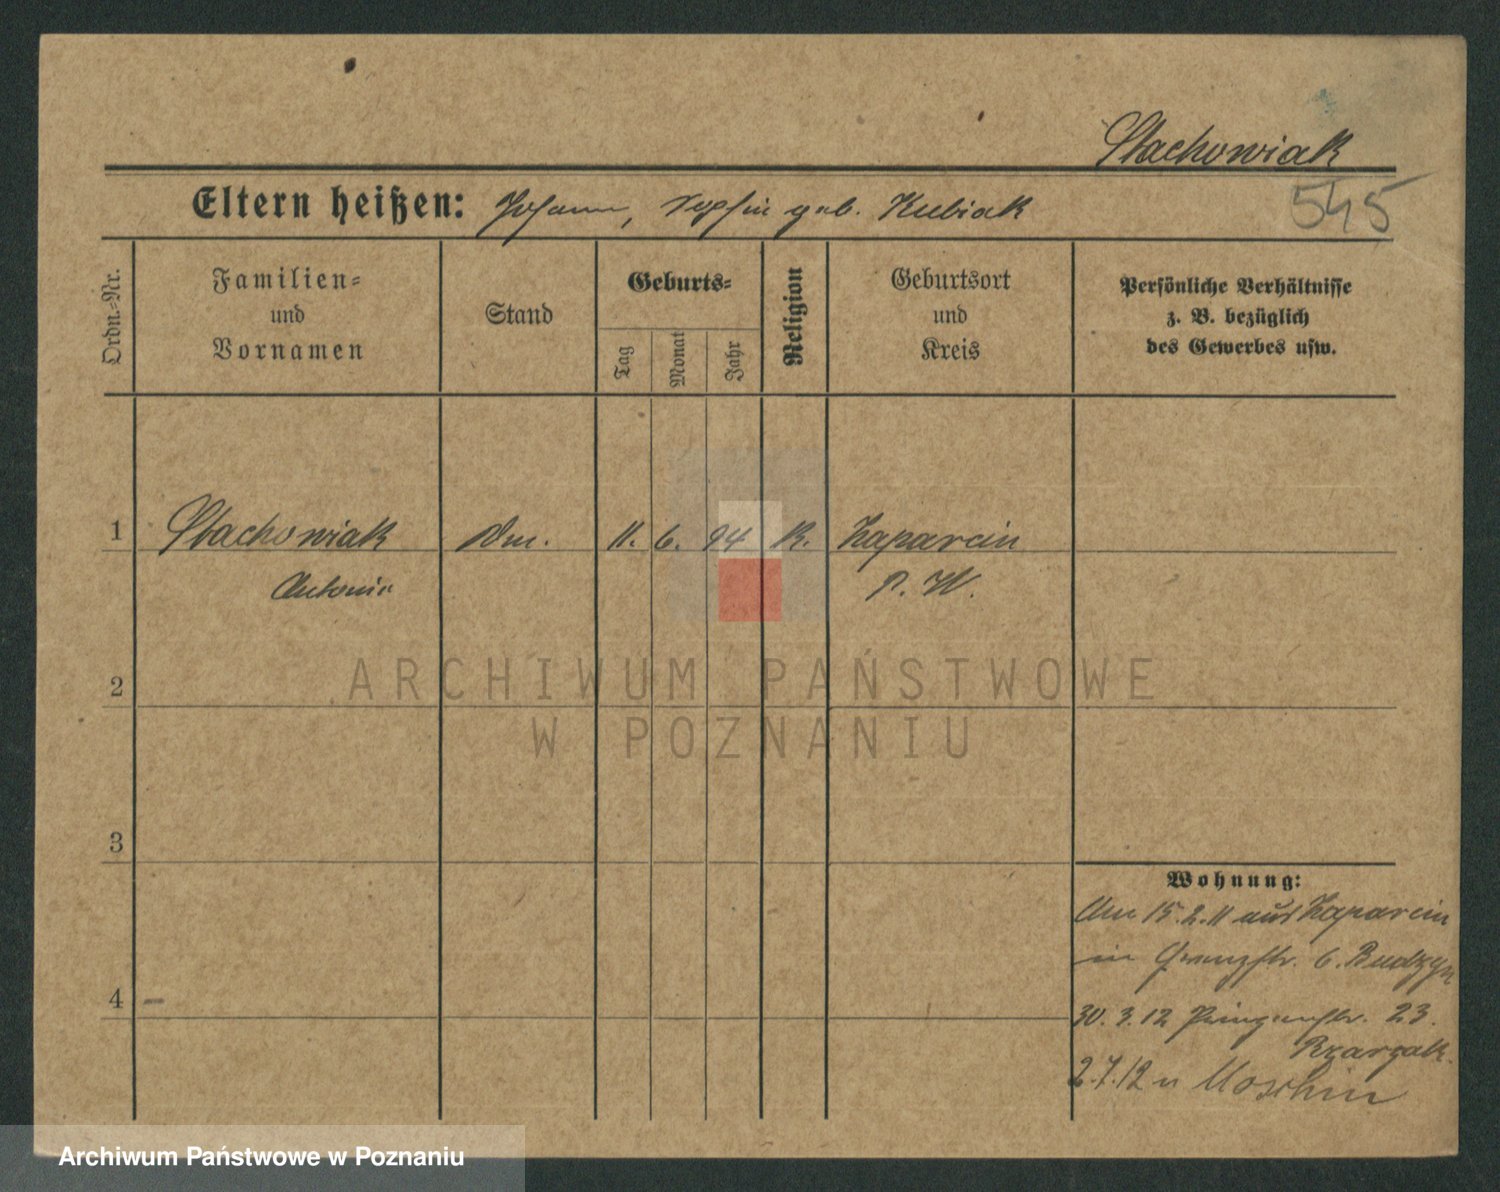 Stachowiak
545
Eltern heißen: Johann, Sophie geb. Kubiak
Ordn.-Nr.
Familien-
und
Vornamen
Stand
Geburts-
Tag
Monat
Jahr
Religion
Geburtsort
und
Kreis
Persönliche Verhältnisse
z. B. bezüglich
des Gewerbes usw.
1 Stachowiak 11. 6. 94 K. Zaparcin
Antonie P. W.
2
3
4
ARCHIWUM PAŃSTWOWE
W POZNANIU
Wohnung:
Am 15.2.11 aus Zaparcin
in Grenzstr. 6. Budzyn
30. 3. 12 Prinzenstr. 23.
2.7.12 n Moschin
Archiwum Państwowe w Poznaniu